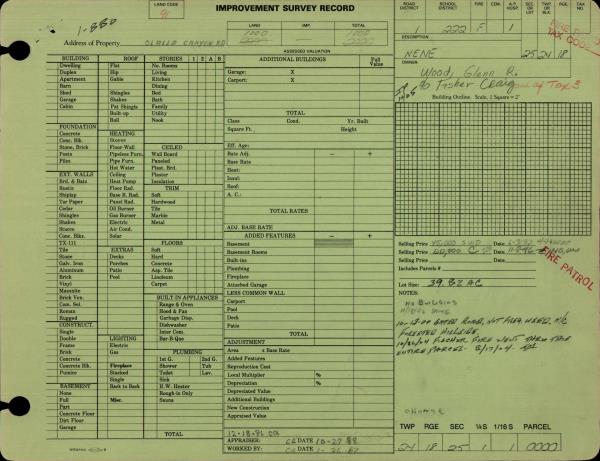 IMPROVEMENT SURVEY RECORD
LAND CODE
91
1-880
Address of Property
CANYON RD
LAND IMP. TOTAL
1000 1000
ASSESSED VALUATION
ROAD DISTRICT
SCHOOL DISTRICT
FIRE
CEM.
A.P. HOSP.
TWP OR BLK
222 F 1
DESCRIPTION
NENE 25 24 18
OWNER
Wood, Glenn R.
% Fisher Craig
Building Outline. Scale, 1 Square = 2'
BUILDING ROOF STORIES 1 2 A B
Dwelling Flat No. Rooms
Duplex Hip Living
Apartment Gable Kitchen
Barn Dining
Shed Shingles Bed
Garage Shakes Bath
Cabin Pat Shingle Family
Built-up Utility
Roll Nook
FOUNDATION
Concrete HEATING
Conc. Blk. Stoves
Stone, Brick Floor-Wall CEILED
Posts Pipeless Furn. Wall Board
Piles Pipe Furn. Paneled
Hot Water Plast. Brd.
EXT. WALLS Ceiling Plaster
Brd. & Bats Heat Pump Insulation
Rustic Floor Rad. TRIM
Shiplap Base R. Rad. Soft
Tar Paper Panel Rad. Hardwood
Cedar Oil Burner Tile
Shingles Gas Burner Marble
Shakes Electric Metal
Stucco Air Cond.
Conc. Blks. Solar
TX-111 FLOORS
Tile EXTRAS Soft
Stone Decks Hard
Galv. Iron Porches Concrete
Aluminum Patio Asp. Tile
Brick Pool Linoleum
Vinyl Carpet
Masonite
Brick Ven. BUILT-IN APPLIANCES
Com. Sel. Range & Oven
Roman Hood & Fan
Rugged Garbage Disp.
CONSTRUCT. Dishwasher
Single Inter Com.
Double LIGHTING Bar-B-Que
Frame Electric
Brick Gas PLUMBING
Concrete 1st G. 2nd G.
Concrete Blk. Fireplace Shower Tub
Pumice Stacked Toilet Lav.
Single Sink
BASEMENT Back to Back H.W. Heater
None Rough-in Only
Full Misc. Sauna
Part
Concrete Floor
Dirt Floor
Garage
TOTAL
ADDITIONAL BUILDINGS Full Value
Garage: X
Carport: X
TOTAL
Class Cond. Yr. Built
Square Ft. Height
Eff. Age:
Rate Adj. – +
Base Rate
Heat:
Insul:
Roof:
A. C.:
TOTAL RATES
ADJ. BASE RATE
ADDED FEATURES – +
Basement
Basement Rooms
Built-ins
Plumbing
Fireplace
Attached Garage
LESS COMMON WALL
Carport
Pool
Deck
Patio
TOTAL
ADJUSTMENT
Area x Base Rate
Added Features
Reproduction Cost
Local Multiplier %
Depreciation %
Depreciated Value
Additional Buildings
New Construction
Appraised Value
12-18-86
APPRAISED: CL 10-27-88
WORKED BY:
Selling Price 45,000 Date
Selling Price 60,000 Date
Selling Price Date
Includes Parcels #
Lot Size: 39.82 AC
NOTES:
NO BUILDING
FIRE PATROL
FORESTED HILLSIDE
FISCHER FIRE WENT THRU THIS
ENTIRE PARCEL - 8/17/04
CHANGE
TWP RGE SEC ¼S 1/16 S PARCEL
24 18 25 1 1 0000